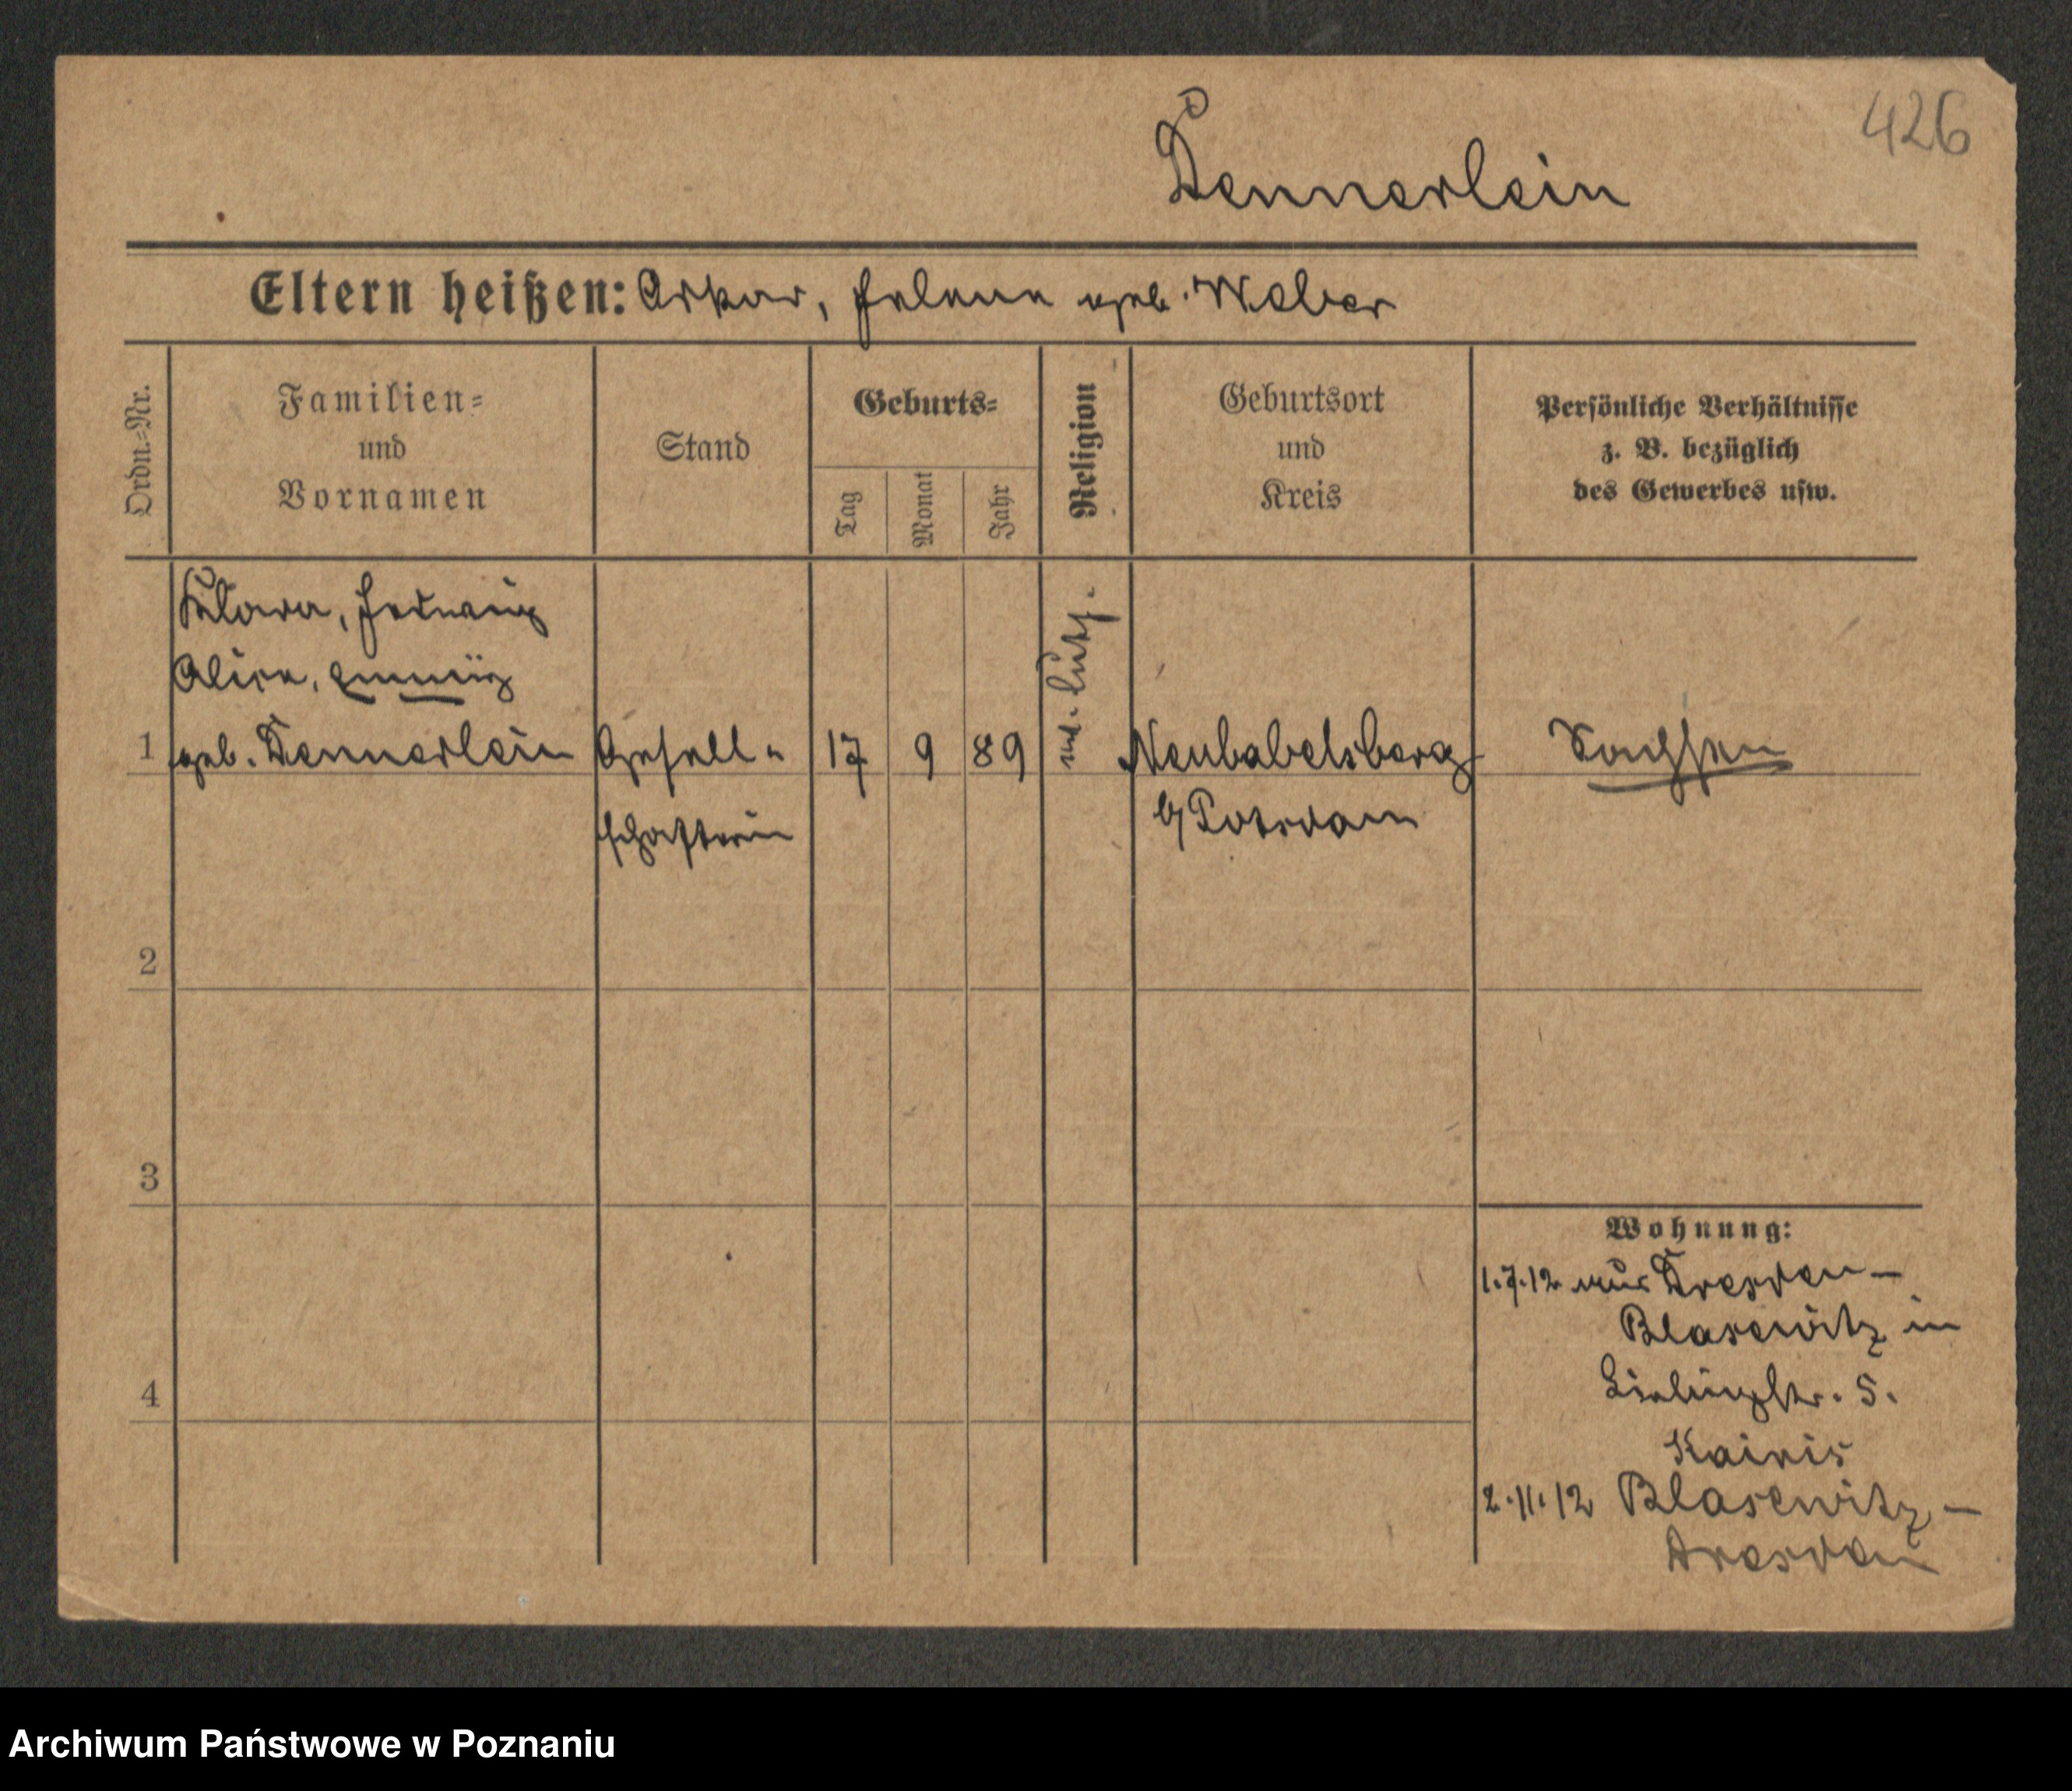 426
Dennerlein
Eltern heißen: Oskar, Helene geb. Weber
Ordn.=Nr.
Familien=
und
Vornamen
Stand
Geburts=
Tag
Monat
Jahr
Religion
Geburtsort
und
Kreis
Persönliche Verhältnisse
z. B. bezüglich
des Gewerbes usw.
Klara, Hedwig
Alice,
1 geb. Dennerlein Gesell- 17 9 89 Neubabelsberg Sachsen
schafterin b/Potsdam
2
3
4
Wohnung:
1.7.12 aus Dresden-
Blasewitz in
5.
2.11.12 Blasewitz-
Dresden
Archiwum Państwowe w Poznaniu